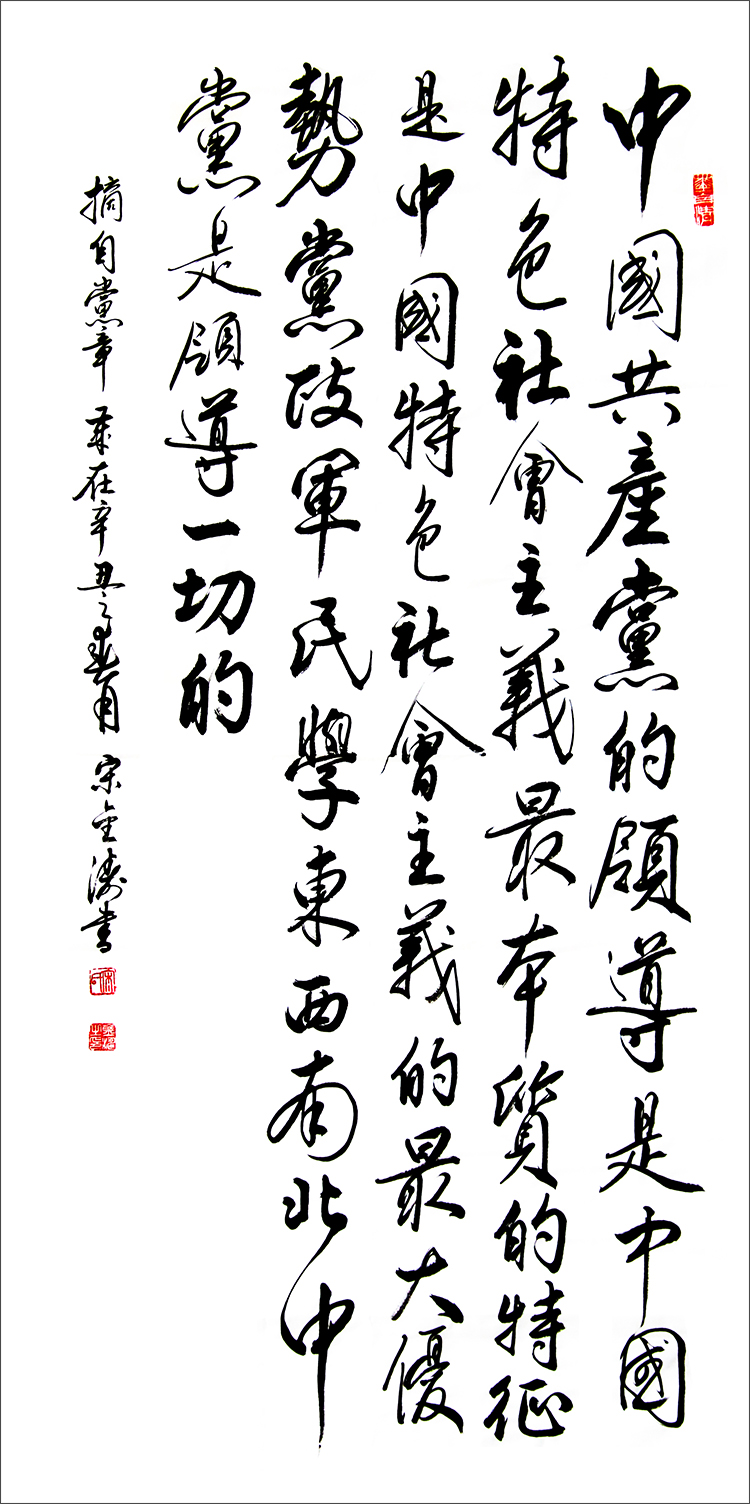 中國共產黨的領導是中國
特色社會主義最本質的特征
是中國特色社會主義的最大優
勢黨政軍民學東西南北中
黨是領導一切的
摘自黨章 歲在辛丑之春月 宋金濤書